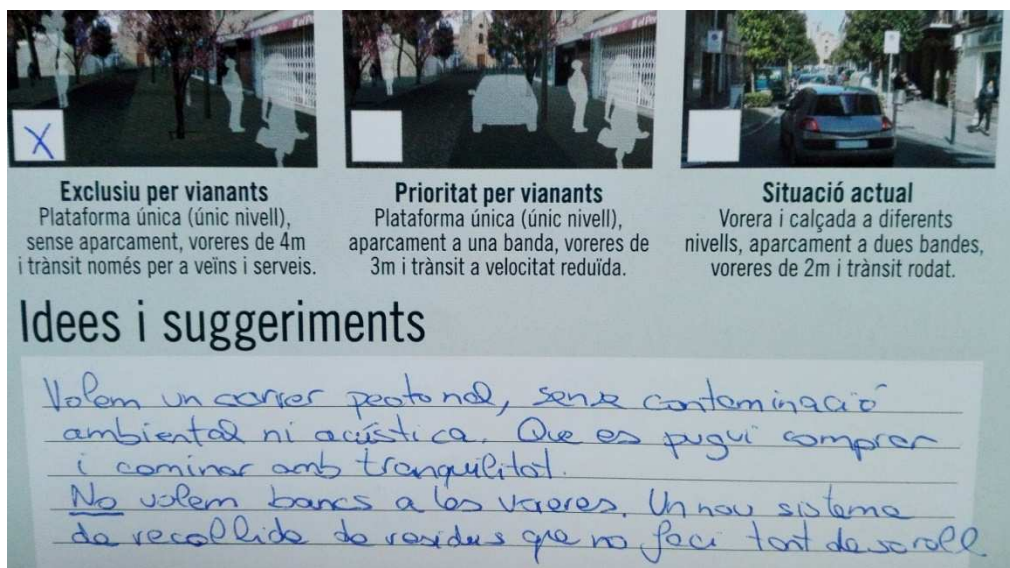 X
Exclusiu per vianants
Plataforma única (únic nivell),
sense aparcament, voreres de 4m
i trànsit només per a veïns i serveis.
Prioritat per vianants
Plataforma única (únic nivell),
aparcament a una banda, voreres de
3m i trànsit a velocitat reduïda.
Situació actual
Vorera i calçada a diferents
nivells, aparcament a dues bandes,
voreres de 2m i trànsit rodat.
Idees i suggeriments
Volem un carrer peatonal, sense contaminació
ambiental ni acústica. Que es pugui comprar
i caminar amb tranquilitat.
No volem bancs a les voreres. Un nou sistema
de recollida de residus que no faci tant de soroll